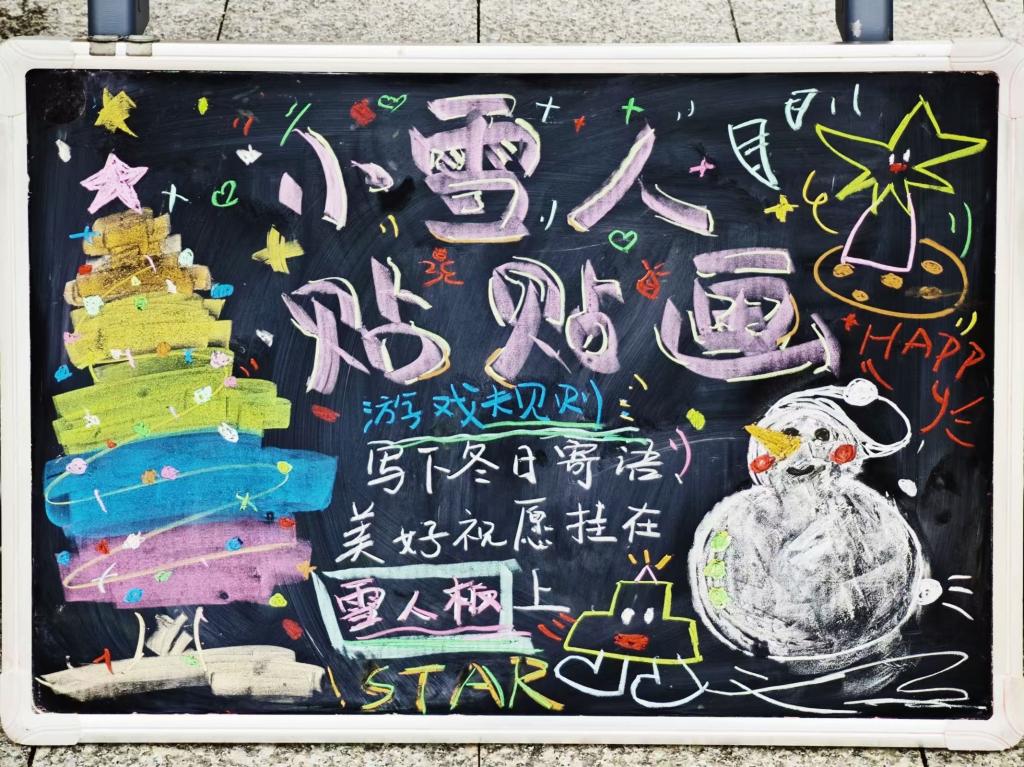 小雪人
贴贴画
HAPPY
游戏规则
写下冬日寄语
美好祝愿挂在
雪人板上
STAR